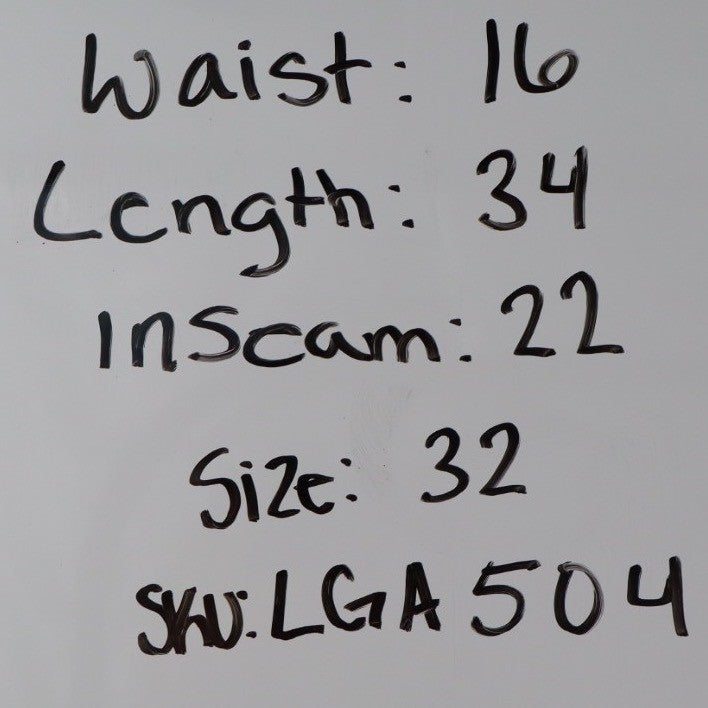 Waist: 16
Length: 34
Inseam: 22
Size: 32
SKU: LGA504